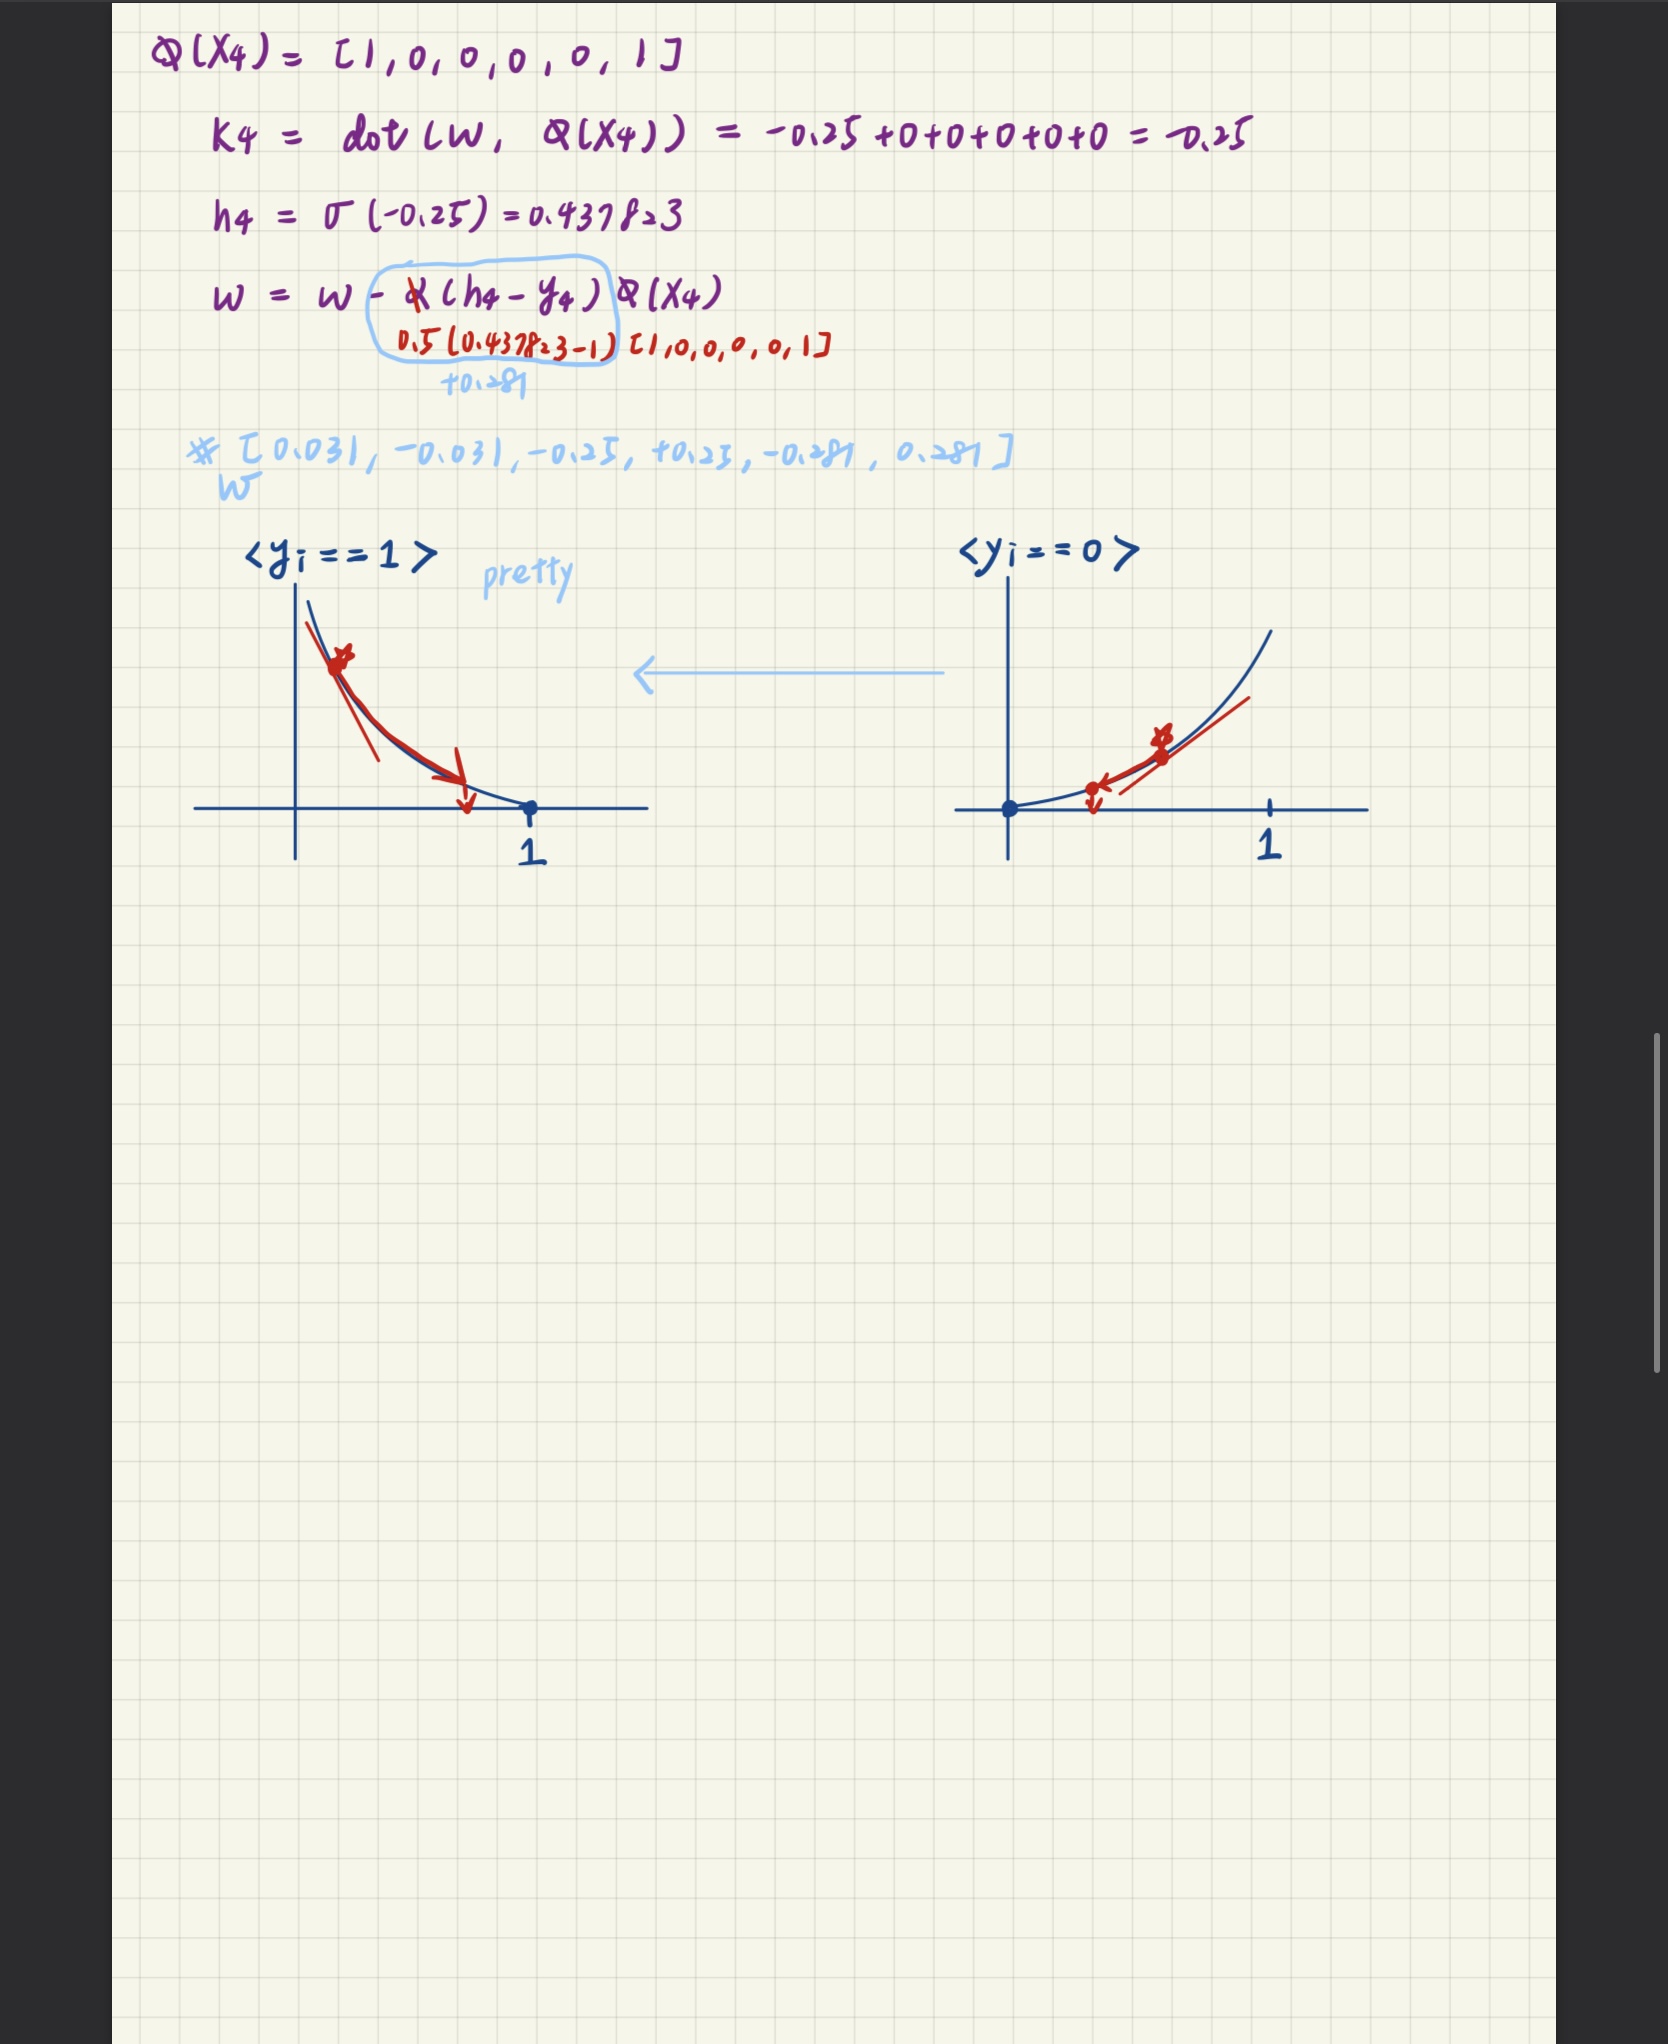 Φ(X4) = [1, 0, 0, 0, 0, 1]
K4 = dot(W, Φ(X4)) = -0.25+0+0+0+0+0 = -0.25
h4 = σ(-0.25) = 0.437823
w = w - α(h4-y4)Φ(X4)
0.5(0.437823-1)[1,0,0,0,0,1]
+0.281
※ [0.031, -0.031, -0.25, +0.25, -0.281, 0.281]
W
<yi==1>
pretty
<yi==0>
1
1